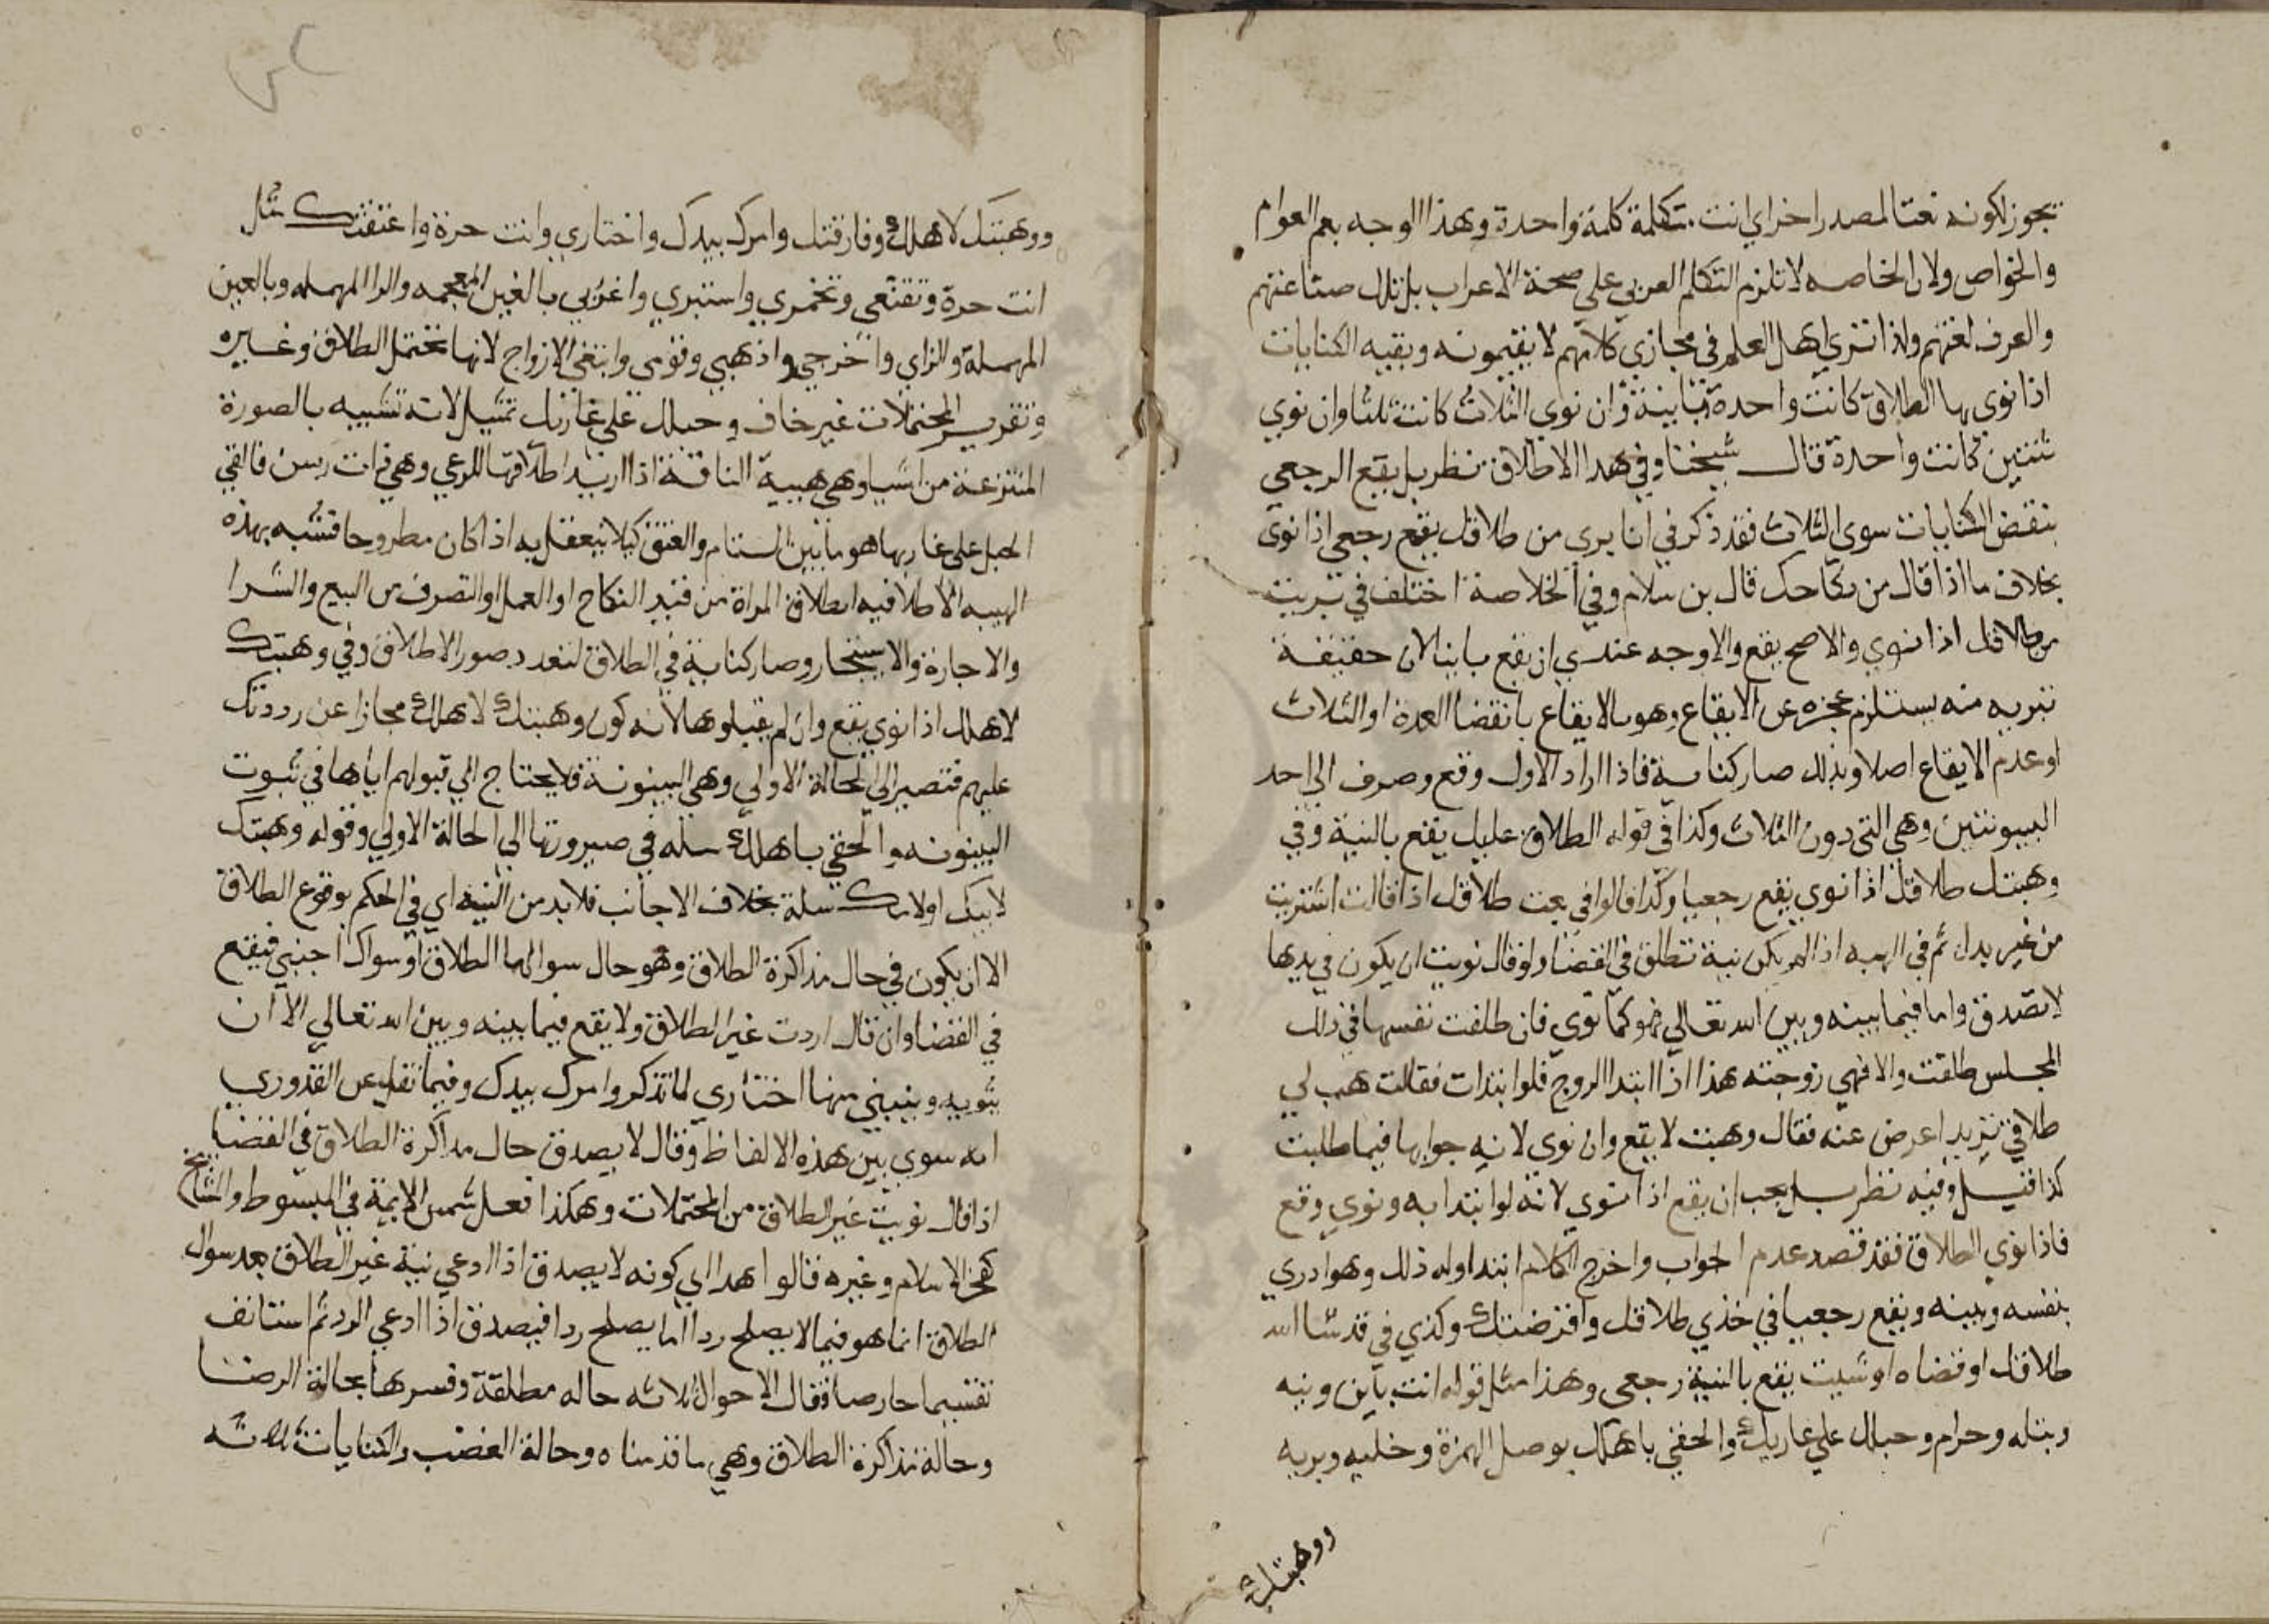 يجوز لكونه نعتا لمصدر اخر اي انت متكلمة كلمة واحدة وهذا الوجه يعم العوام
والخواص ولان الخاصه لا تلزم التكلم العربي علي صحة الاعراب بل تلك صناعتهم
والعرف لغتهم ولذا تري اهل العلم في مجازي كلامهم لا يقيمونه وبقيه الكنايات
اذا نوى بها الطلاق كانت واحدة باينة وان نوى الثلاث كانت ثلثا وان نوي
ثنتين كانت واحدة قال شيخنا وفي هذا الاطلاق نظر بل يقع الرجعي
ببعض الكنايات سوى الثلاث فقد ذكر في انا بري من طلاقك يقع رجعي اذا نوى
بخلاف ما اذا قال من نكاحك قال بن سلام وفي الخلاصة اختلف في تبريت
من طلاقك اذا نوي والاصح يقع والاوجه عندي ان يقع باينا لان حقيقة
تبريه منه يستلزم عجزه عن الايقاع وهو بالايقاع بانقضا العدة او الثلاث
او عدم الايقاع اصلا وبذلك صار كناية فاذا اراد الاول وقع وصرف الي احد
البينونتين وهي التي دون الثلاث وكذا في قوله الطلاق عليك يقع بالنية وفي
وهبتك طلاقك اذا نوي يقع رجعيا وكذا قالوا في بعت طلاقك اذا قالت اشتريت
من غير بدل ثم في الهبه اذا لم يكن نية تطلق في القضا ولو قال نويت ان يكون في يدها
لا تصدق واما فيما بينه وبين الله تعالي فهو كما نوي فان طلقت نفسها في ذلك
المجلس طلقت والا فهي زوجته هذا اذا ابتدا الزوج فلو ابتدات فقالت هب لي
طلاقي تريد اعرض عنه فقال وهبت لا يقع وان نوى لانه جوابها فيما طلبت
كذا قيل وفيه نظر بل يجب ان يقع اذا نوي لانه لو ابتدا به ونوي وقع
فاذا نوي الطلاق فقد قصد عدم الجواب واخرج الكلام ابتدا وله ذلك وهو ادري
بنفسه ونيته ويقع رجعيا في خذي طلاقك واقرضتك وكذي في قد شا الله
طلاقك او قضاه او شيت يقع بالنية رجعي وهذا مثل قوله انت باين وبته
وبتله وحرام وحبلك علي غاربك والحقي باهلك بوصل الهمزة وخليه وبريه
ووهبتك
ووهبتك لاهلك وفارقتك وامرك بيدك واختاري وانت حرة واعتقتك مثل
انت حرة وتقنعي وتخمري واستبري واغربي بالغين المعجمه والرا المهمله وبالعين
المهملة والزاي واخرجي واذهبي وقومي وابتغي الازواج لانها تحتمل الطلاق وغيره
وتقرير المحتملات غير خاف وحبلك علي غاربك تمثيل لانه تشبيه بالصورة
المنتزعة من اشيا وهي هيية الناقة اذا اريد اطلاقها للرعي وهي ذات رسن فالقي
الحبل على غاربها هو ما بين السنام والعنق كيلا يتعقل به اذا كان مطروحا فشبه بهذه
الهييه الاطلاقيه اطلاق المراة من قيد النكاح او العمل او التصرف من البيع والشرا
والاجارة والاستيجار وصار كناية في الطلاق لتعدد صور الاطلاق وفي وهبتك
لاهلك اذا نوي يقع وان لم يقبلوها لانه كون وهبتك لاهلك مجازا عن رددتك
عليهم فتصير الي الحالة الاولي وهي البينونة فلا يحتاج الي قبولهم اياها في ثبوت
البينونه والحقي باهلك مثله في صيرورتها الي الحالة الاولي وقوله وهبتك
لابيك اولابنك مثله بخلاف الاجانب فلابد من النيه اي في الحكم بوقوع الطلاق
الا ان يكون في حال مذاكرة الطلاق وهو حال سوالها الطلاق او سوال اجنبي فيقع
في القضا وان قال اردت غير الطلاق ولا يقع فيما بينه وبين الله تعالي الا ان
ينويه وينبغي منها اختاري لما تذكر وامرك بيدك وفيما نقل عن القدوري
انه سوي بين هذه الالفاظ وقال لا يصدق حال مذاكرة الطلاق في القضا
اذا قال نويت غير الطلاق من المحتملات وهكذا فعل شمس الايمة في المبسوط والمشايخ
كفخر الاسلام وغيره قالوا هذا اي كونه لا يصدق اذا ادعي نية غير الطلاق بعد سوال
الطلاق انما هو فيما لا يصلح ردا اما يصلح ردا فيصدق اذا ادعي الرد ثم استانف
تقسيما حارصا فقال الاحوال ثلاثه حاله مطلقة وفسرها بحالة الرضا
وحالة مذاكرة الطلاق وهي ما قدمناه وحالة الغضب والكنايات ثلاثه